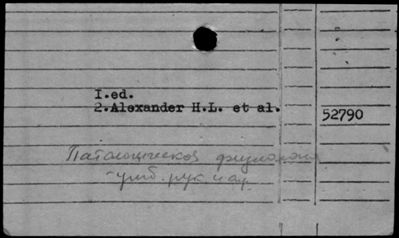 I.ed.
2.Alexander H.L. et al.
52790
Патологическая физиология